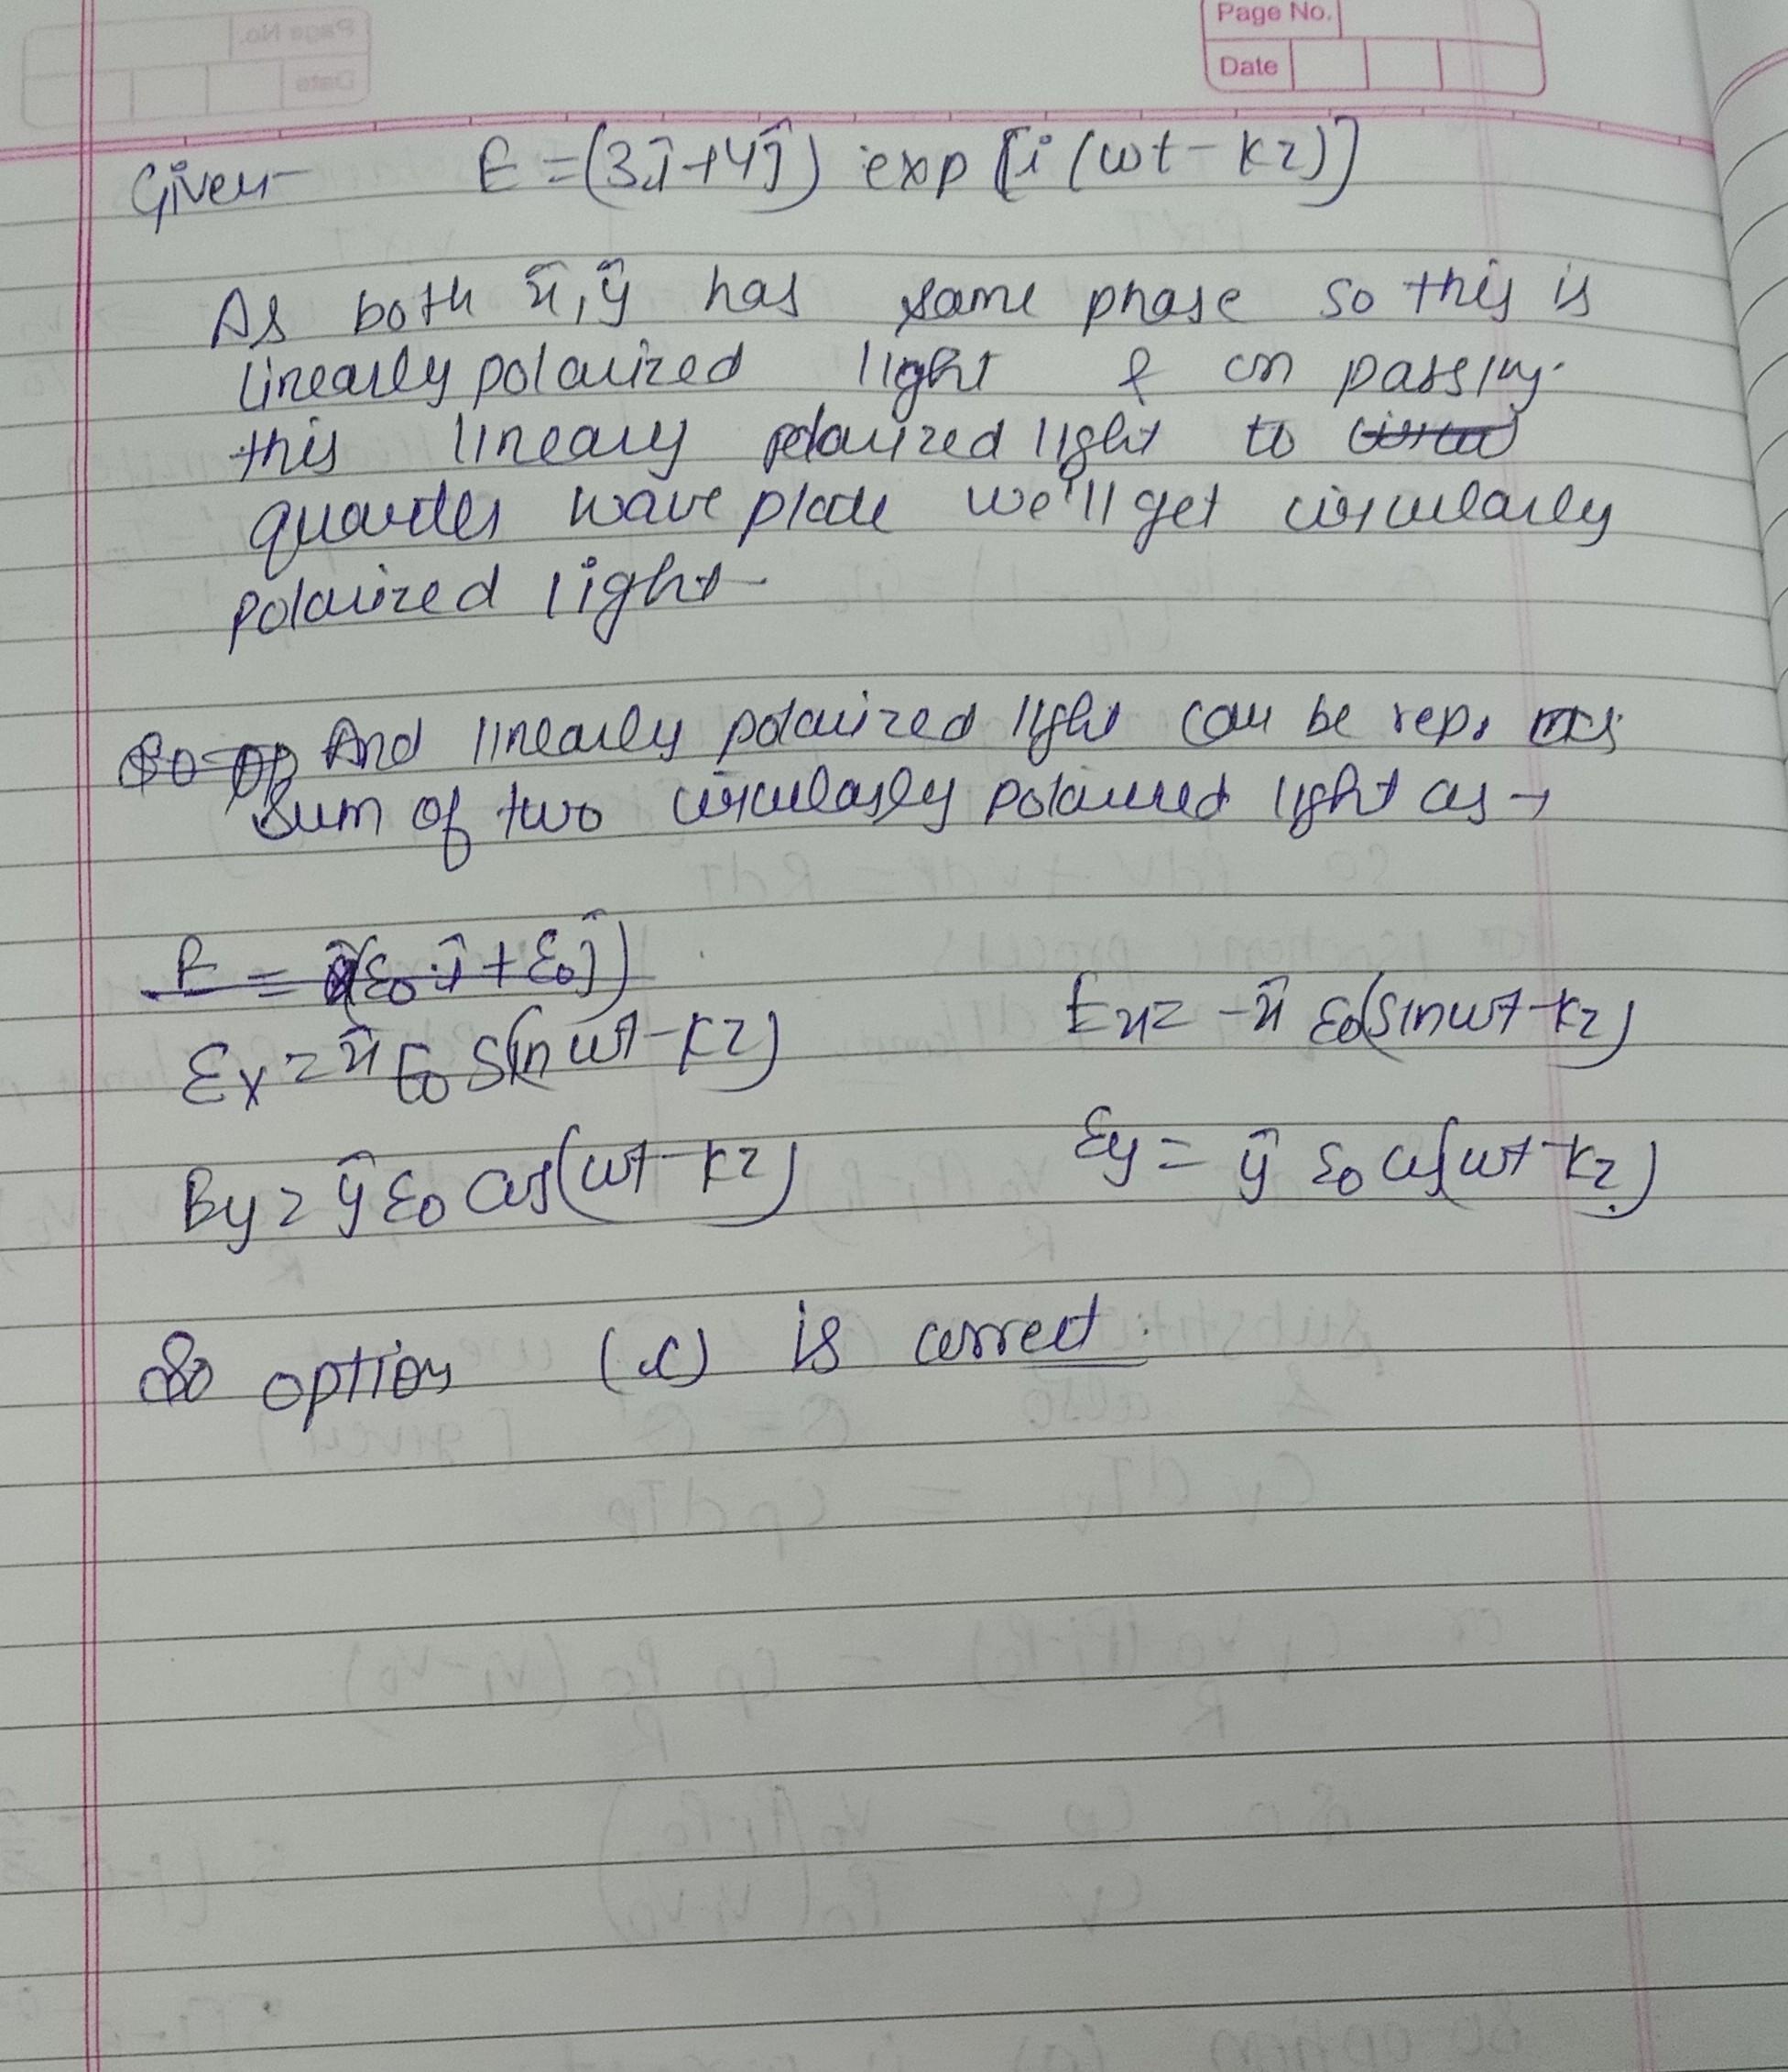 Page No.
Date
Given- E = (3î + 4ĵ) exp [i (ωt - kz)]
As both x̂, ŷ has same phase so this is
linearly polarized light & on passing
this lineary polarized light to
quarter wave plate we'll get circularly
polarized light-
And linearly polarized light can be rep. as
sum of two circularly polarized light as →
E = (ε₀ î + ε₀ ĵ)
Ex = x̂ E₀ Sin(ωt - kz) Ex = -x̂ ε₀(sin ωt - kz)
Ey = ŷ ε₀ cos(ωt - kz) Ey = ŷ ε₀ cos(ωt - kz)
So option (c) is correct.